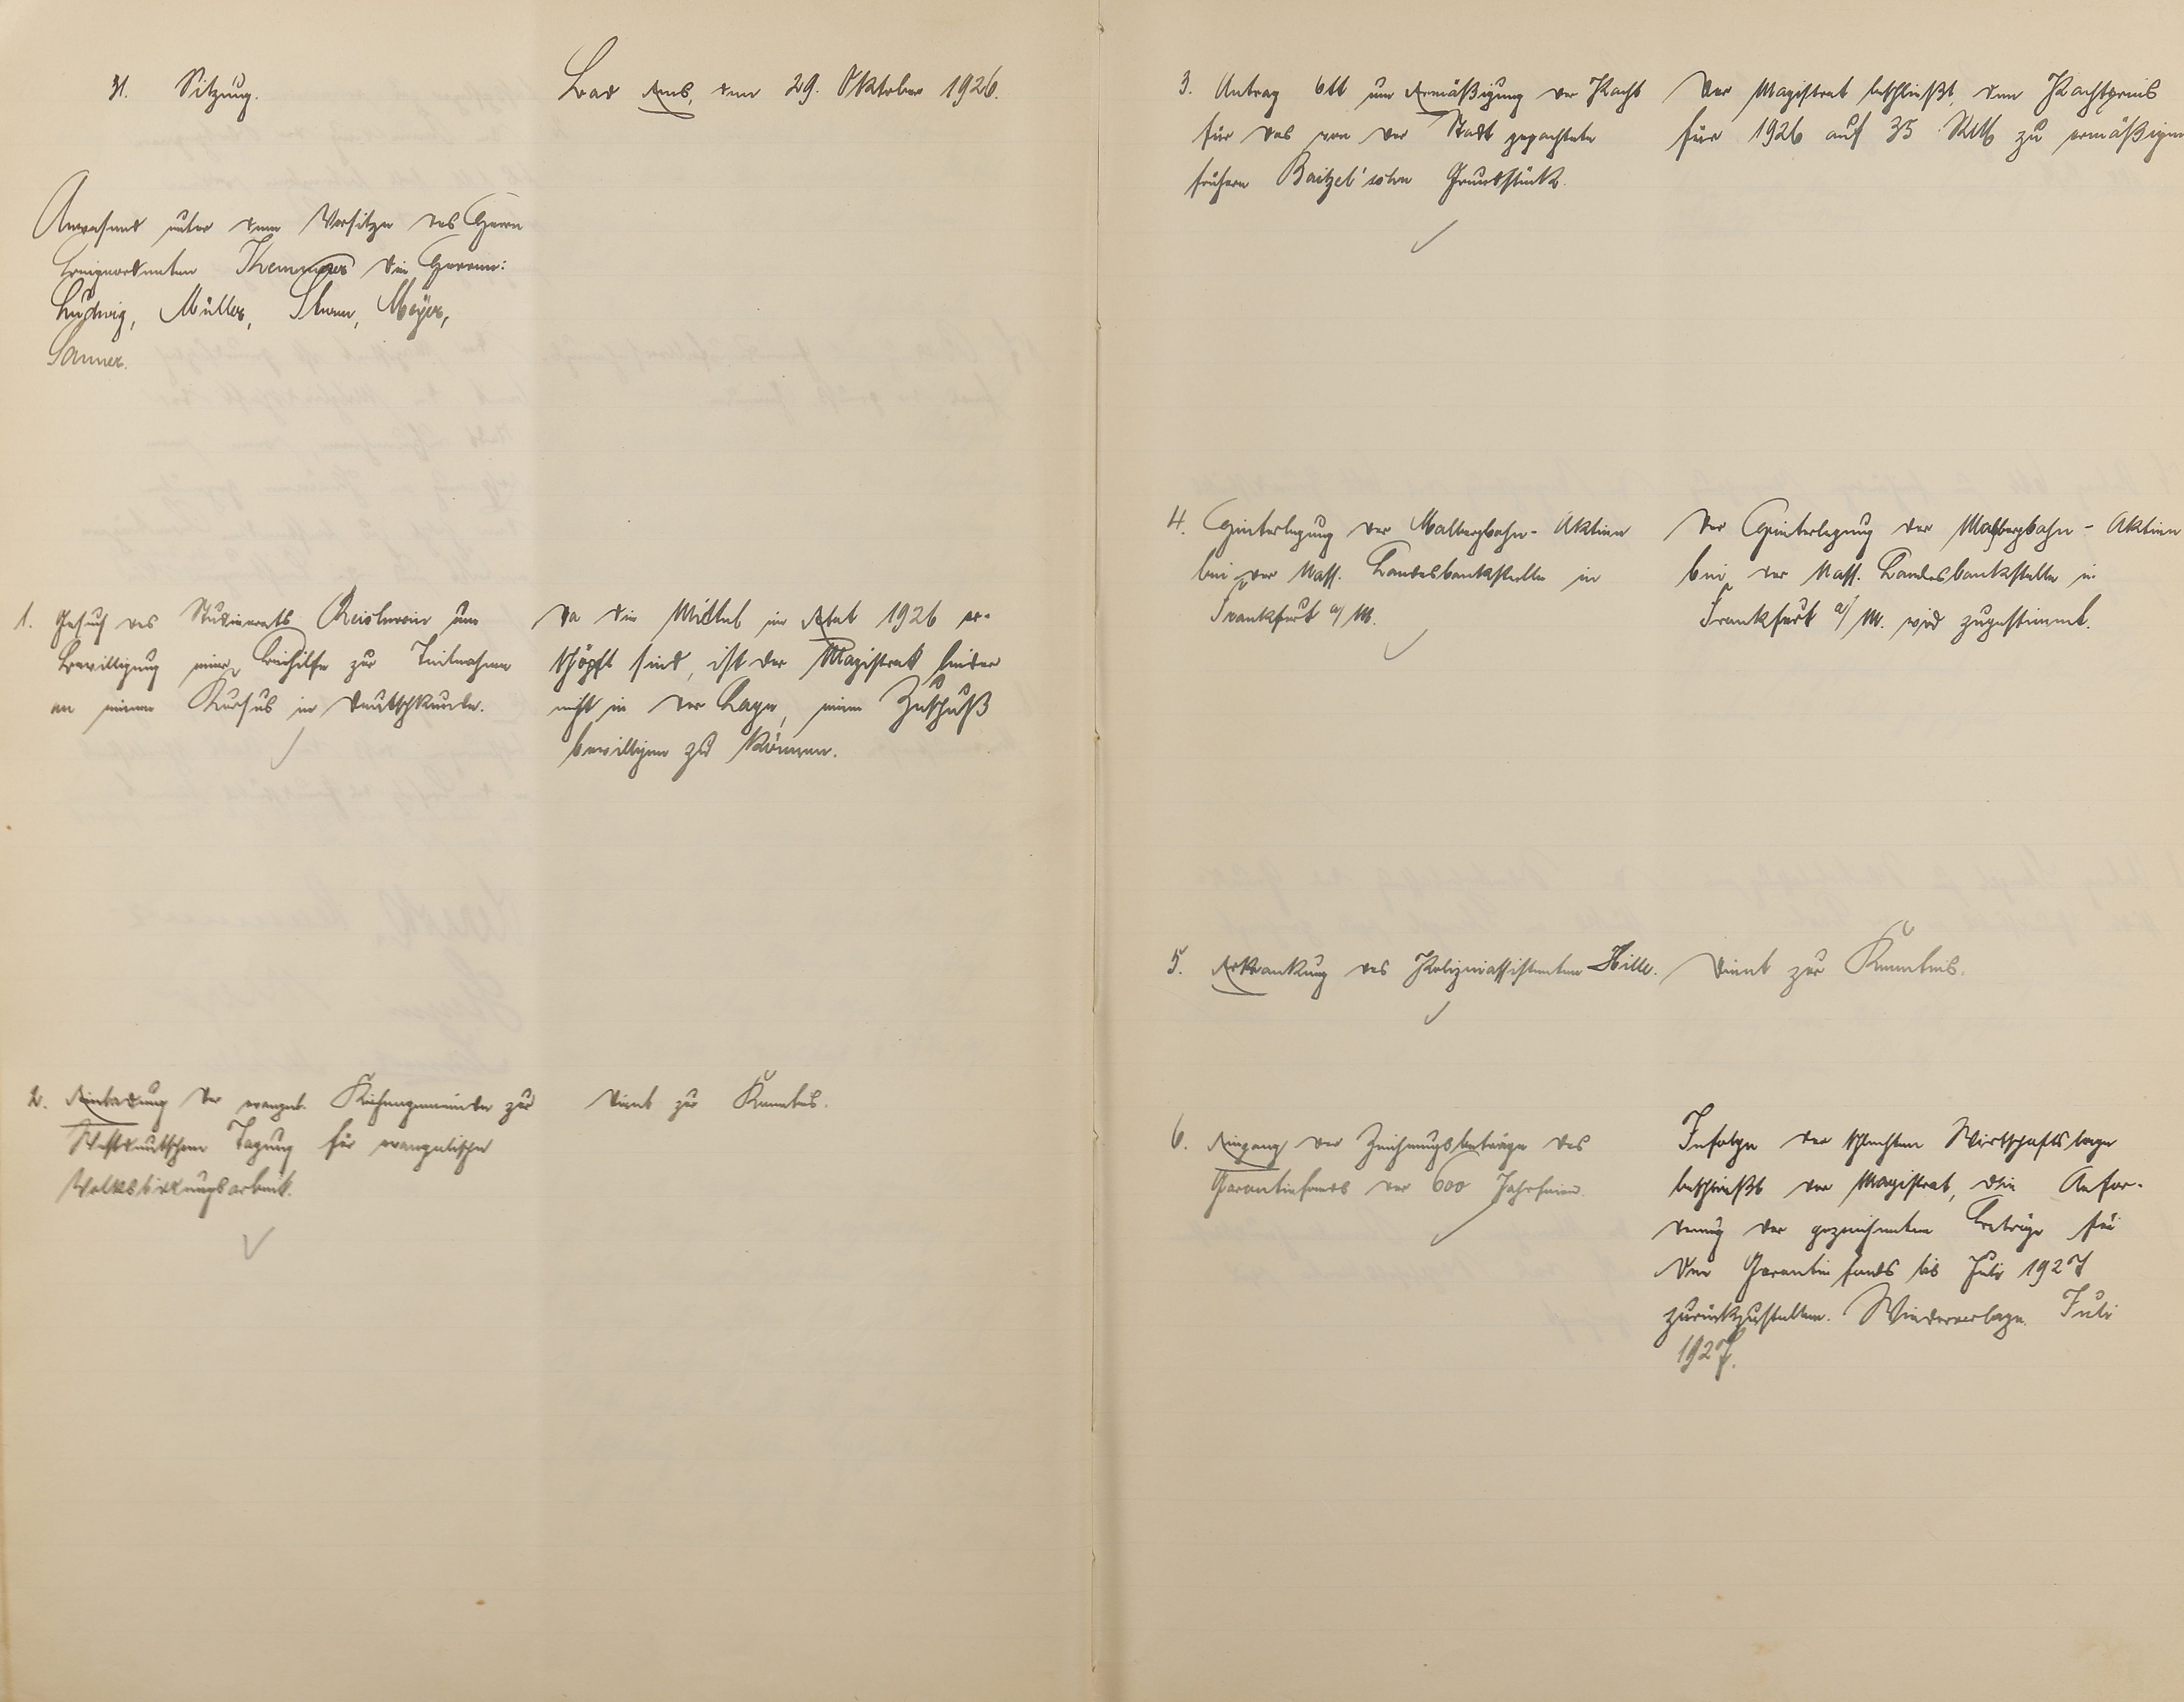 31. Sitzung.
Bad Ems, den 29. Oktober 1926.
Anwesend unter dem Vorsitze des Herrn
Beigeordneten Themmer die Herren:
Ludwig, Müller, Sturm, Meyer,
Sanner.
1. Gesuch des Studienrats um
Bewilligung einer Beihilfe zur Teilnahme
an einem Kursus in Deutschkunde.
Da die Mittel im Etat 1926 er-
schöpft sind, ist der Magistrat leider
nicht in der Lage, einen Zuschuß
bewilligen zu können.
2. Einladung der evangel. Kirchengemeinde zur
Westdeutschen Tagung für evangelische
Volksbildungsarbeit.
Dient zur Kenntnis.
3. Antrag Ott um Ermäßigung der Pacht
für das von der Stadt gepachtete
frühere Baitzel'schen Grundstück.
Der Magistrat beschließt, den Pachtpreis
für 1926 auf 35 RM zu ermäßigen
4. Hinterlegung der Malbergbahn-Aktien
bei der Nass. Landesbankstelle in
Frankfurt a/M.
Der Hinterlegung der Malbergbahn-Aktien
bei der Nass. Landesbankstelle in
Frankfurt a/M. wird zugestimmt.
5. Erkrankung des Polizeiassistenten Hille.
Dient zur Kenntnis.
6. Eingang der Zeichnungsbeträge des
Garantiefonds der 600 Jahrfeier.
Infolge der schlechten Wirtschaftslage
beschließt der Magistrat, die Anfor-
derung der gezeichneten Beträge für
den Garantiefonds bis Juli 1927
zurückzustellen. Wiedervorlage Juli
1927.